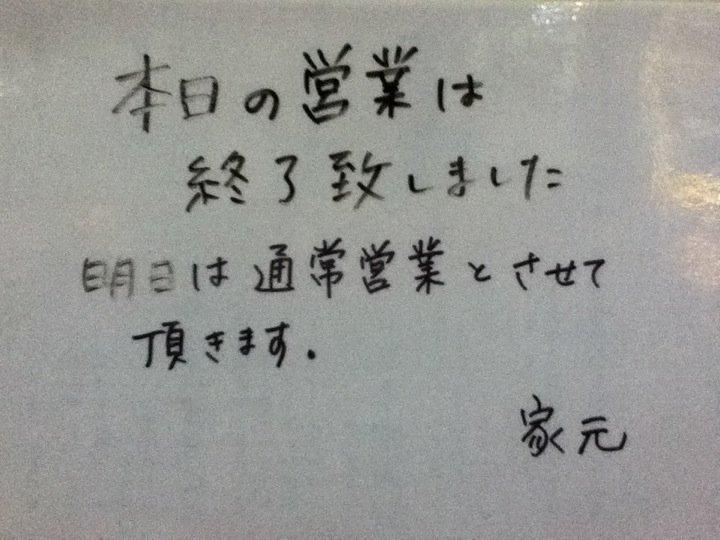 本日の営業は
終了致しました
明日は通常営業とさせて
頂きます.
家元